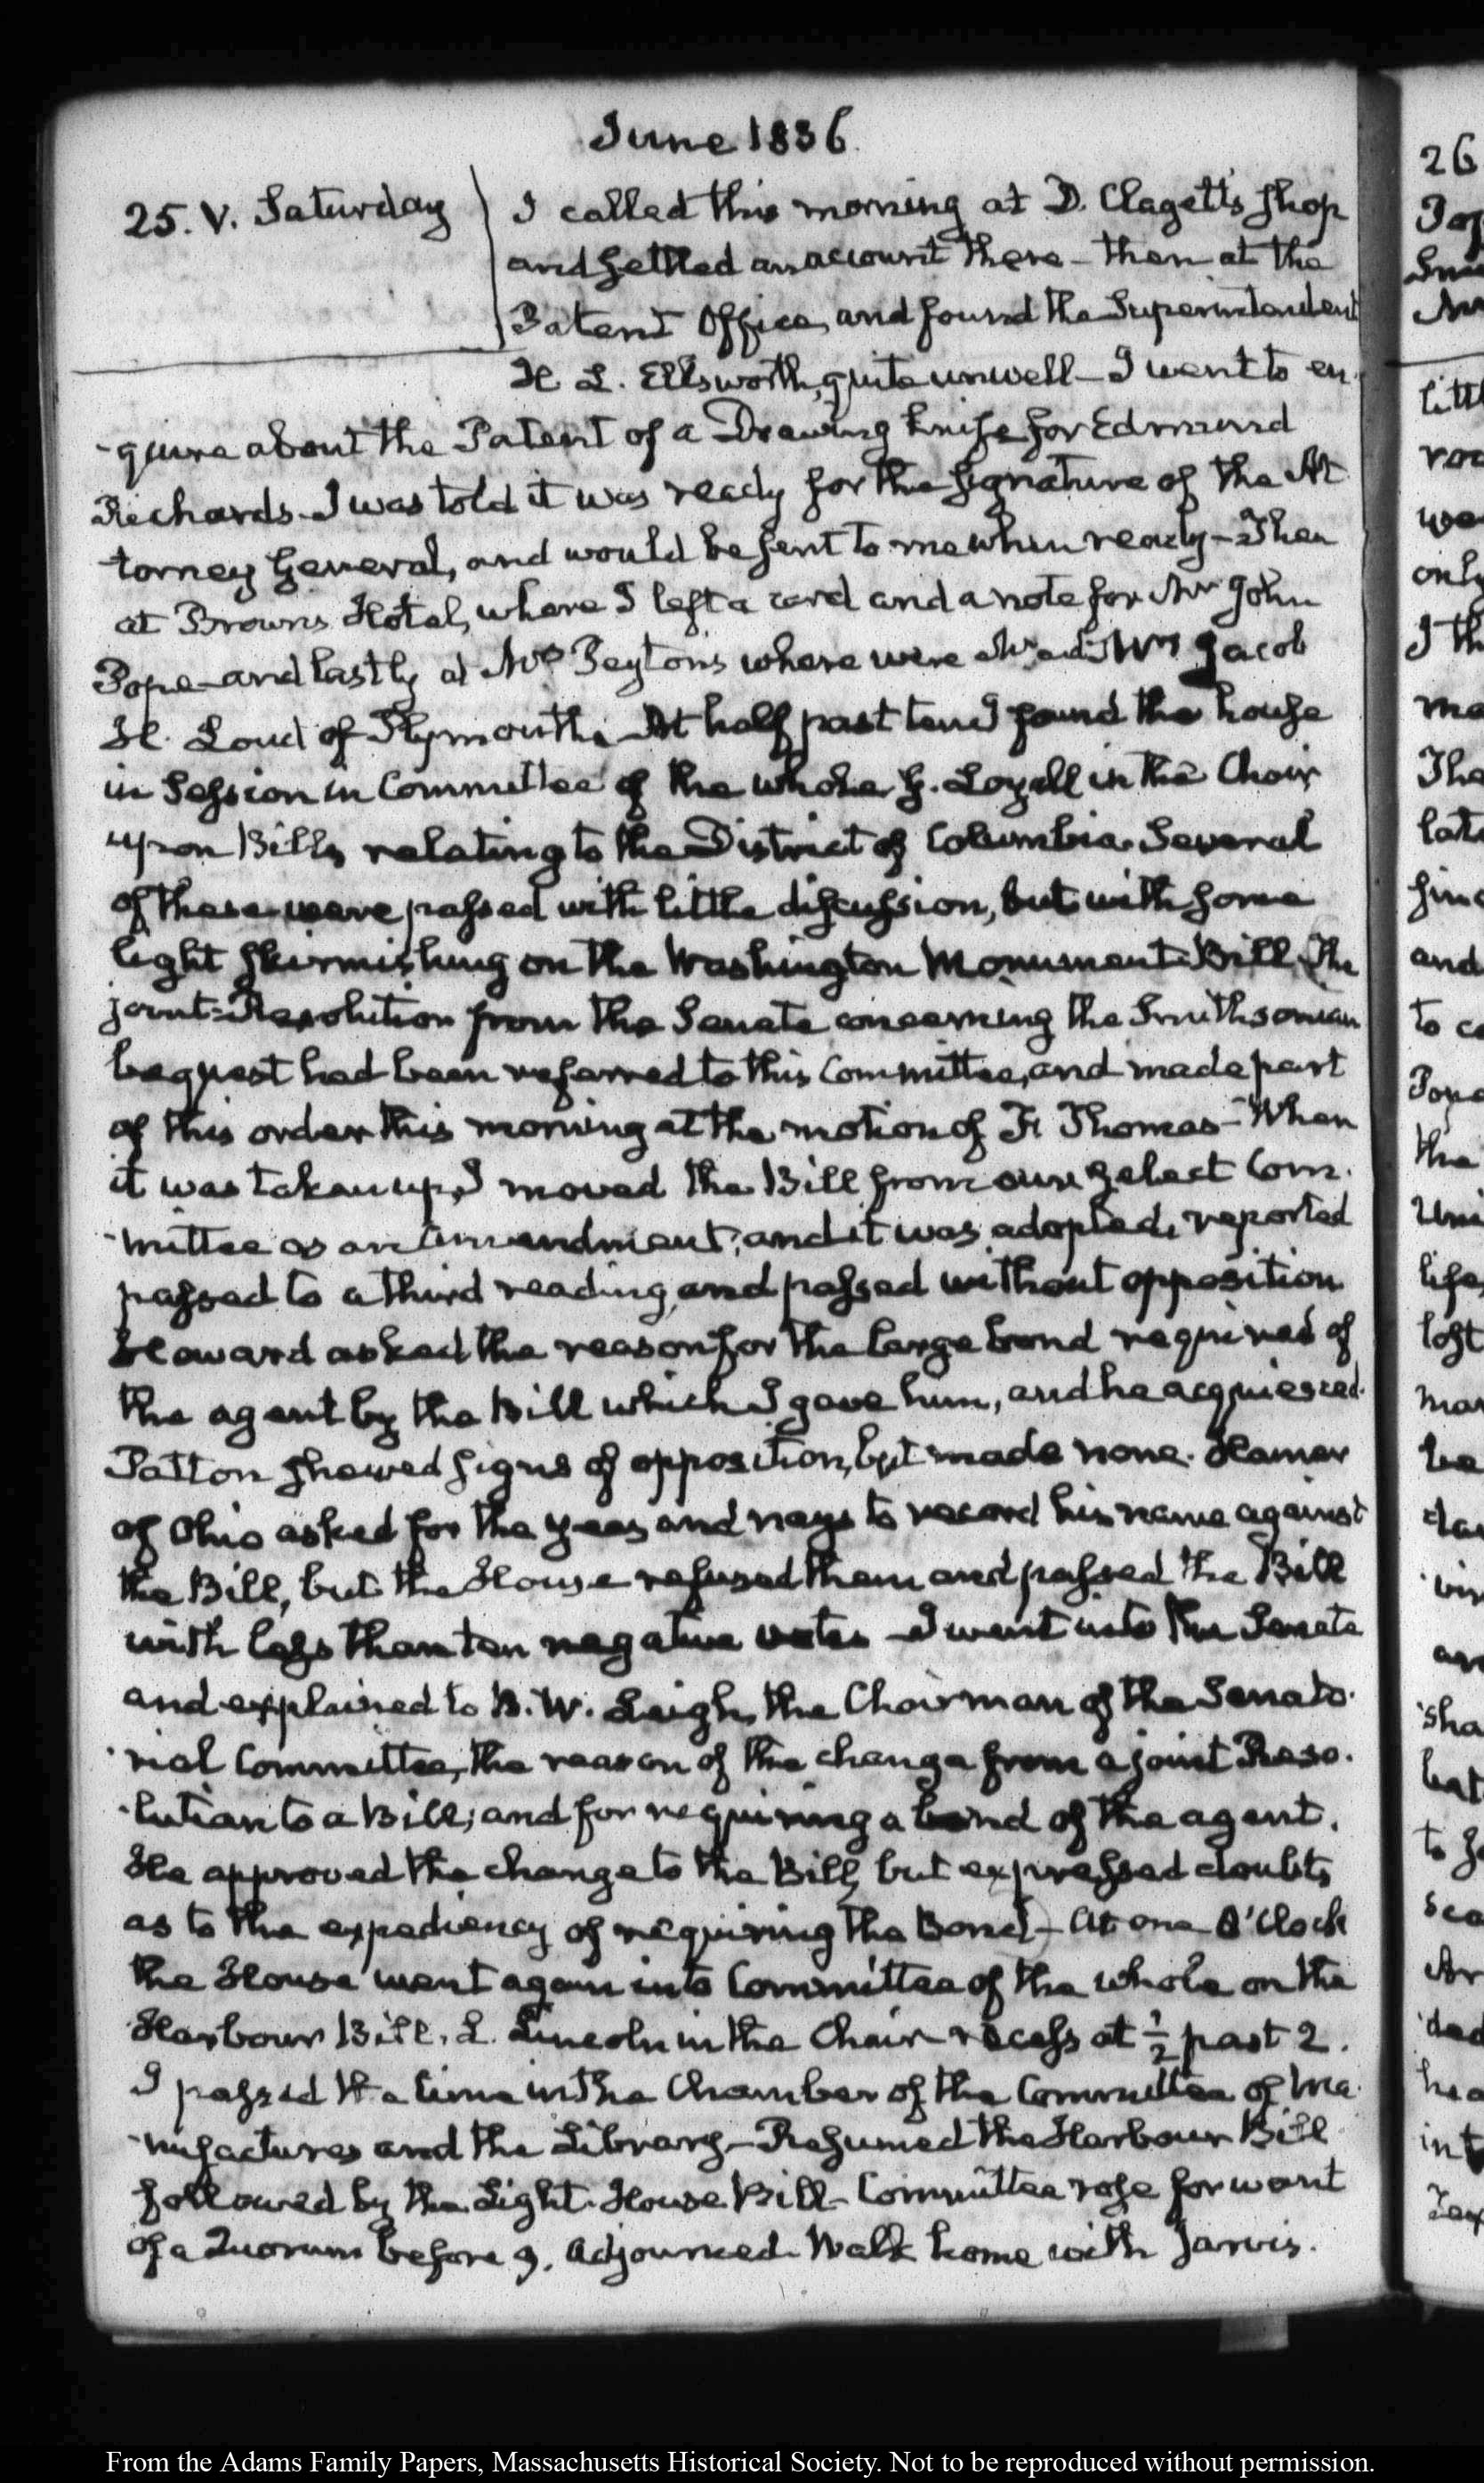 June 1836
25. V. Saturday
I called this morning at D. Clagett's shop
and settled an account there - then at the
Patent Office, and found the Superintendent
H. L. Ellsworth, quite unwell - I went to en-
-quire about the Patent of a Drawing knife for Edmund
Richards - I was told it was ready for the signature of the At
torney General, and would be sent to me when ready - Then
at Brown's Hotel, where I left a card and a note for Mr John
Pope - and lastly at Mrs Peyton's where were Mr and Mrs Jacob
H. Loud of Plymouth. At half past ten I found the house
in Session in Committee of the whole G. Loyall in the Chair
upon Bills relating to the District of Columbia. Several
of these were passed with little discussion, but with some
light skirmishing on the Washington Monument Bill. The
joint-Resolution from the Senate concerning the Smithsonian
bequest had been referred to this Committee, and made part
of this order this morning at the motion of F. Thomas - When
it was taken up, I moved the Bill from our select Com-
-mittee as an amendment, and it was adopted, reported
passed to a third reading, and passed without opposition
Howard asked the reason for the large bond required of
the agent by the Bill which I gave him, and he acquiesced.
Patton showed signs of opposition, but made none. Hamer
of Ohio asked for the yeas and nays to record his name against
the Bill, but the House refused them and passed the Bill
with less than ten negative votes - I went into the Senate
and explained to B. W. Leigh, the Chairman of the Senato-
-rial Committee, the reason of the change from a joint Reso-
-lution to a Bill; and for requiring a bond of the agent.
He approved the change to the Bill, but expressed doubts
as to the expediency of requiring the Bond - At one O'Clock
the House went again into Committee of the whole on the
Harbour Bill. L. Lincoln in the Chair - recess at ½ past 2.
I passed the time in the Chamber of the Committee of Ma-
-nufactures and the Library - Resumed the Harbour Bill
followed by the Light-House Bill - Committee rose for want
of a Quorum before 9. Adjourned. Walk home with Jarvis.
26
From the Adams Family Papers, Massachusetts Historical Society. Not to be reproduced without permission.